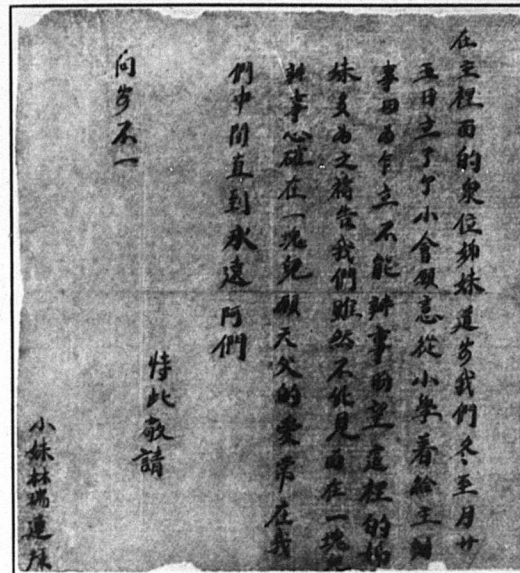 在主裡面的衆位姊妹道安我們冬至月廿
五日立了个小會願意從小學着給主辦
事因為乍立不能辦事面望這裡的姊
妹多為之禱告我們雖然不能見面在一塊兒
辦事心確在一塊兒願天父的愛常在我
們中間直到永遠 阿們
特此敬請
向安不一
小妹林瑞蓮